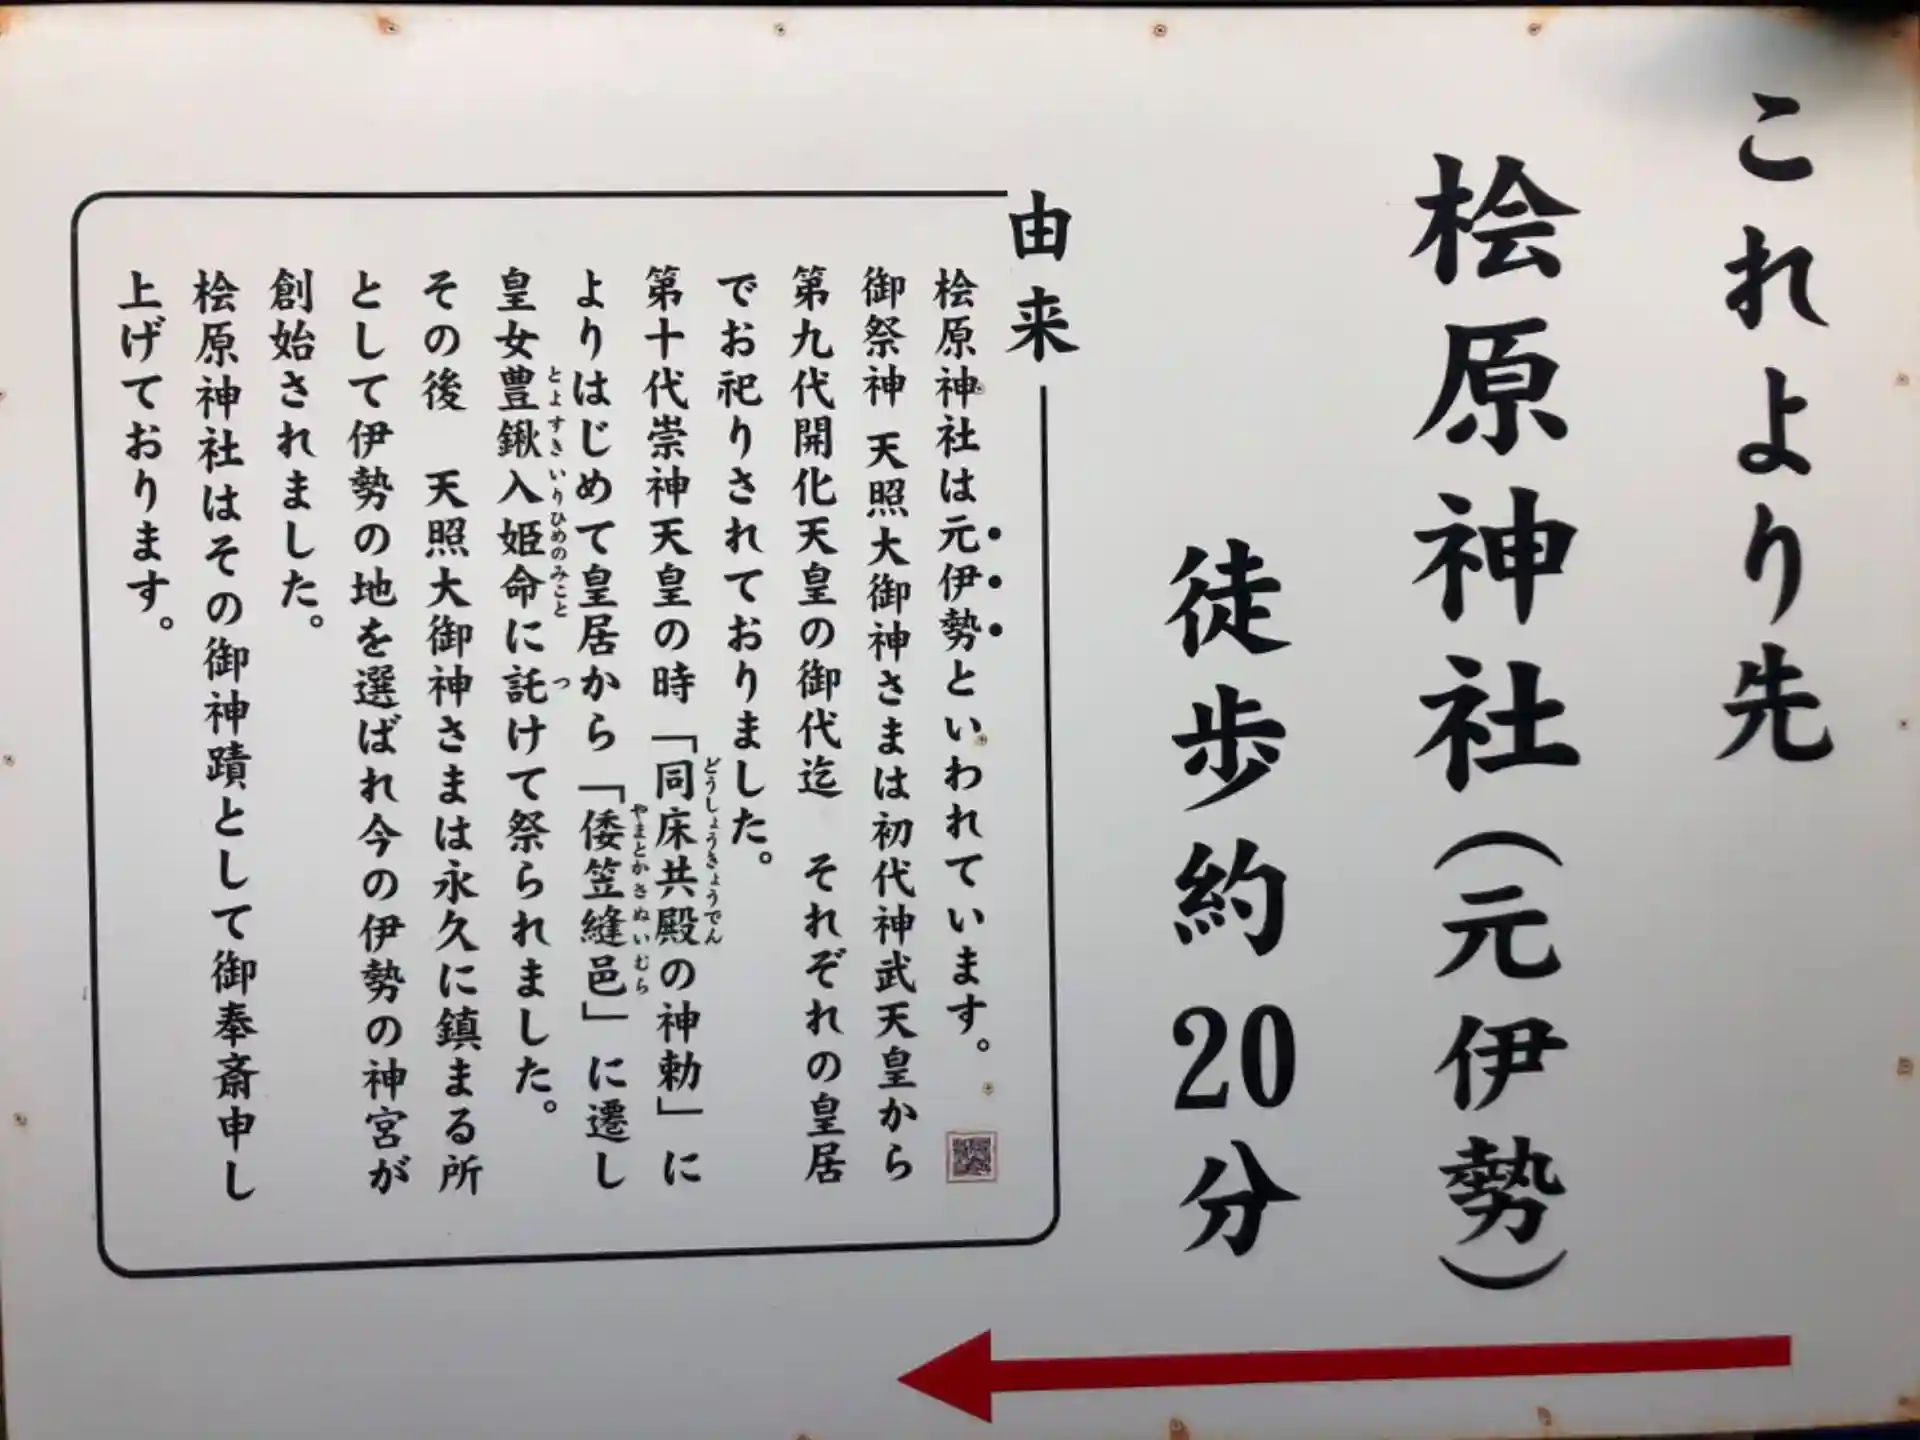 これより先
桧原神社(元伊勢)
徒歩約20分
由来
桧原神社は元伊勢といわれています。
御祭神 天照大御神さまは初代神武天皇から
第九代開化天皇の御代迄 それぞれの皇居
でお祀りされておりました。
第十代崇神天皇の時「同床共殿の神勅」に
どうしょうきょうでん
よりはじめて皇居から「倭笠縫邑」に遷し
やまとかさぬいむら
皇女豊鍬入姫命に託けて祭られました。
とよすきいりひめのみこと つ
その後 天照大御神さまは永久に鎮まる所
として伊勢の地を選ばれ今の伊勢の神宮が
創始されました。
桧原神社はその御神蹟として御奉斎申し
上げております。